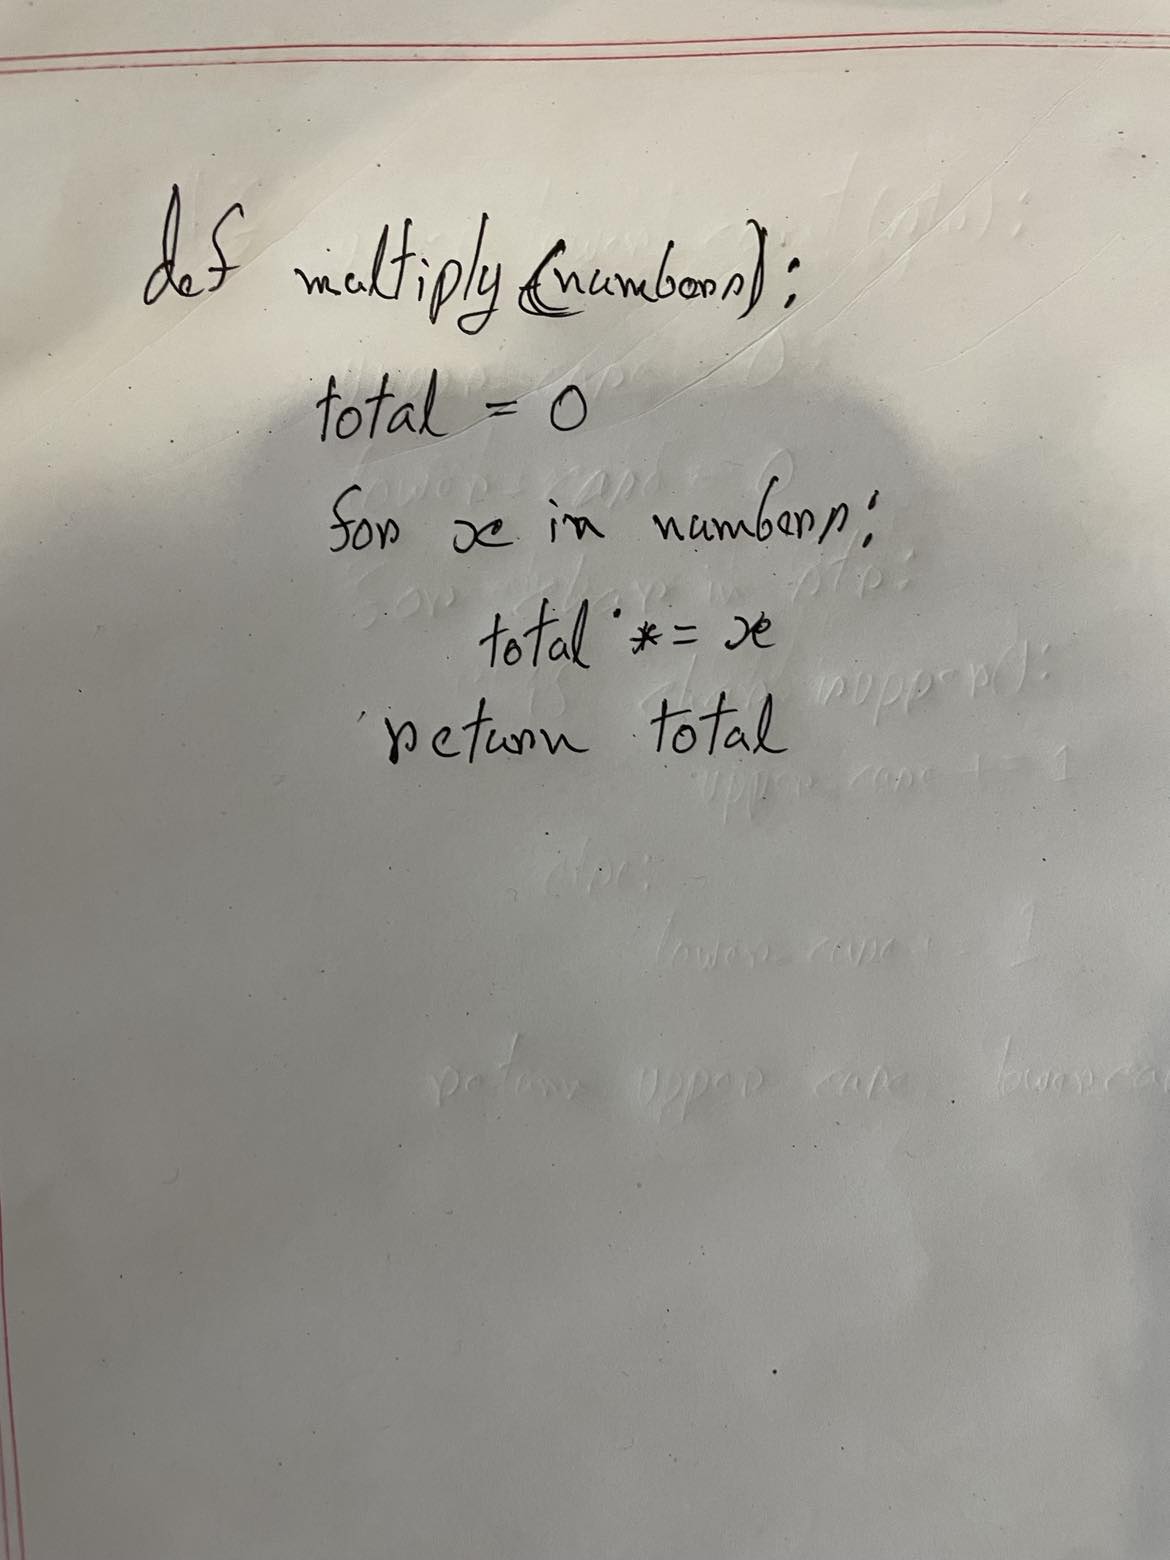 def multiply(numbers):
total = 0
for x in numbers:
total *= x
return total